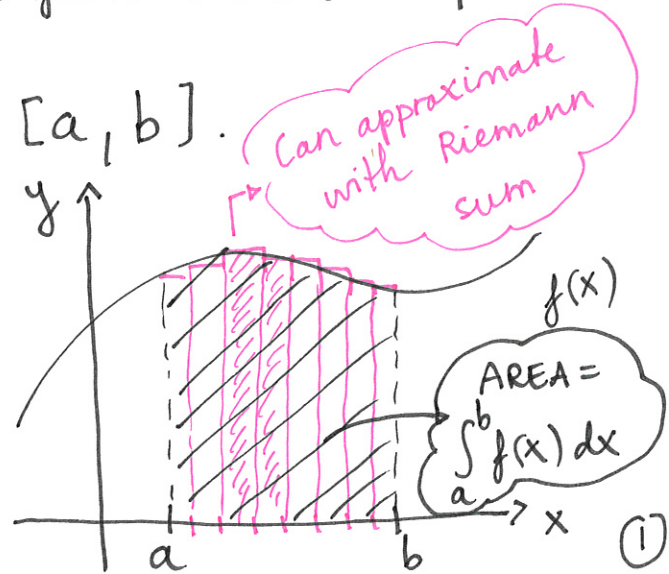 [a, b].
Can approximate
with Riemann
sum
y
f(x)
AREA =
∫ₐᵇ f(x) dx
x
a
b
①